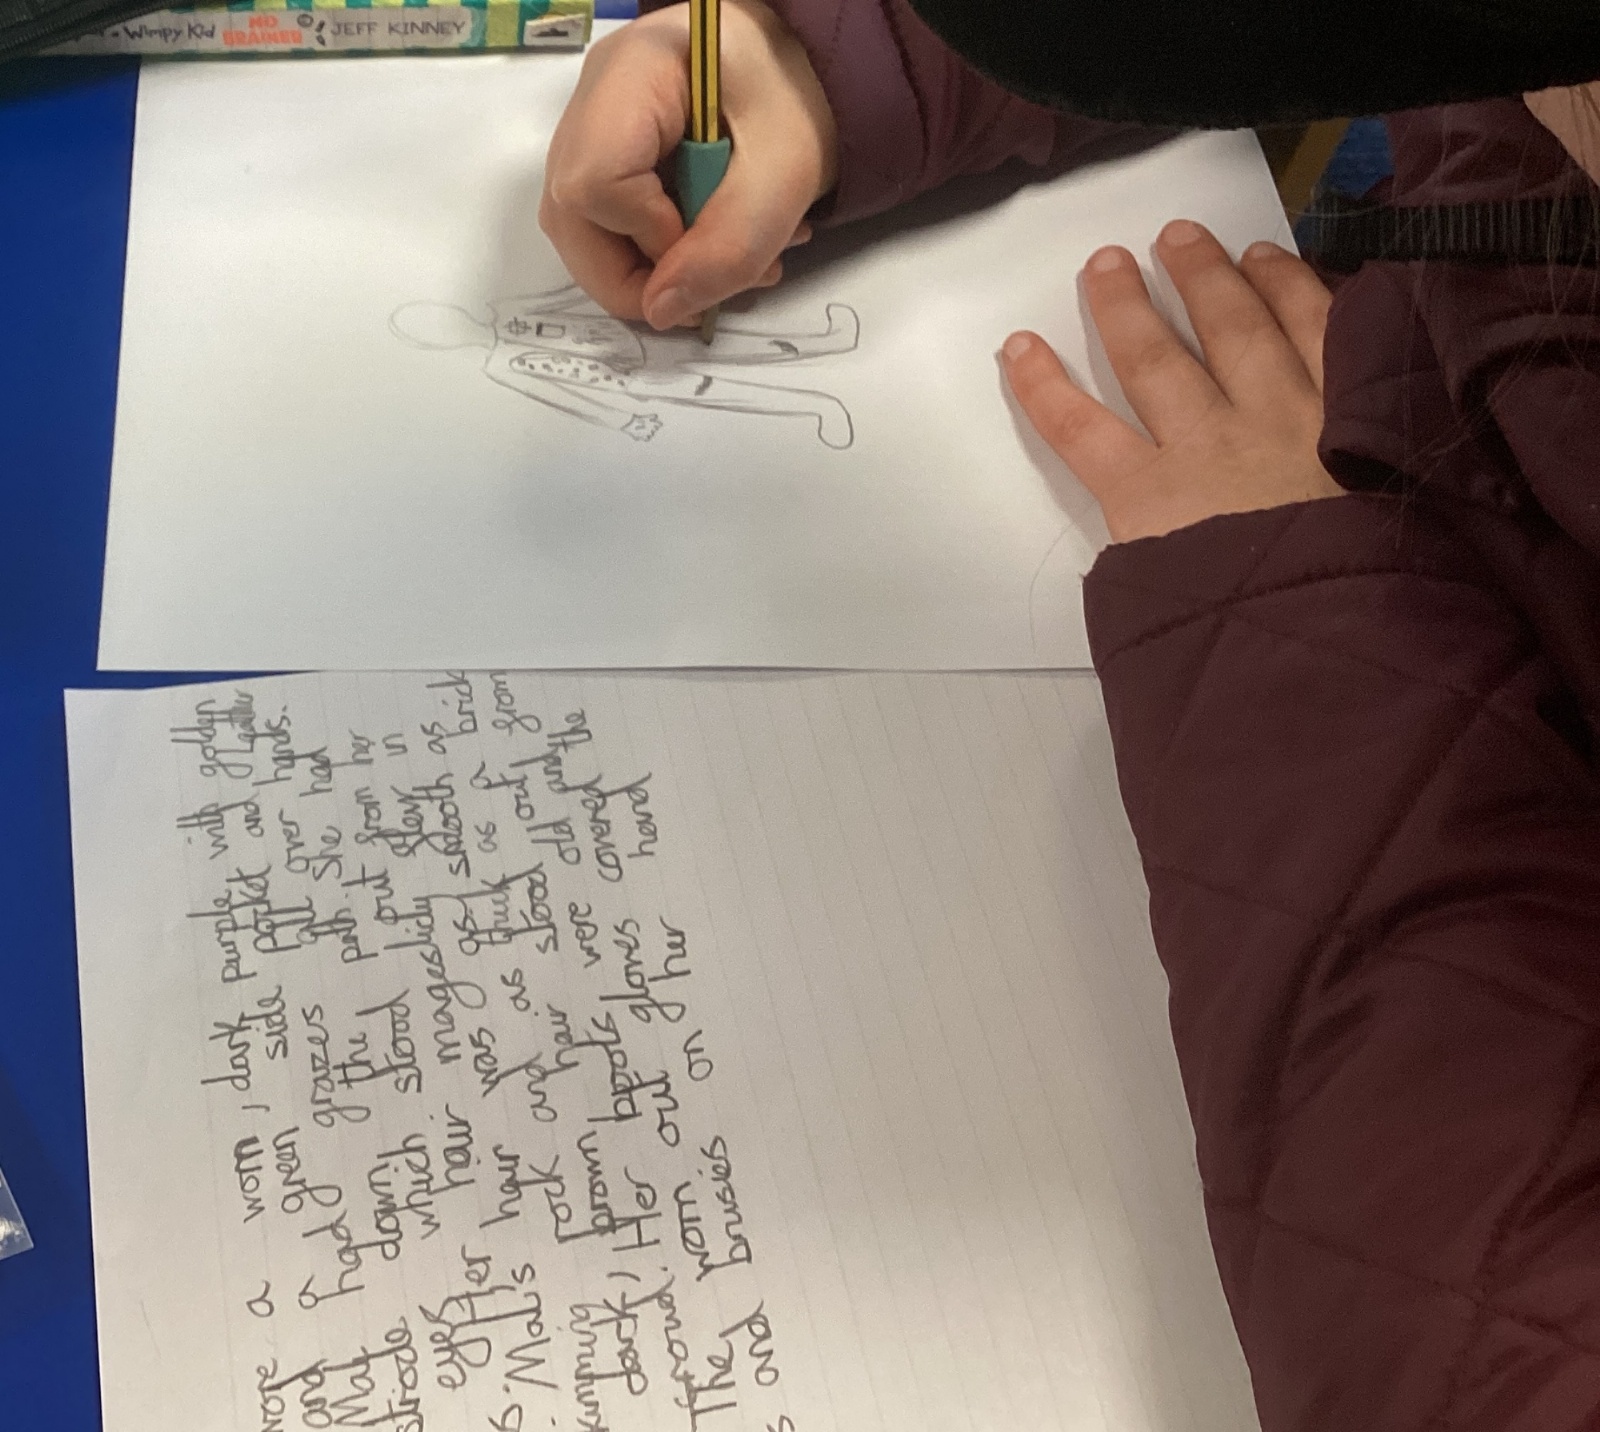 wore a worn, dark purple with golden
and a green side pocket and leather
Mal had grazes all over hands.
strode down the path. She had
eyes which stood out from her
s. Her hair magesticly flew in
Mal's hair was as smooth as
rock and as thick as a brick
brown hair stood out from
dark, Her boots were old and the
worn out gloves covered
The brusies on her hand
s and
Wimpy Kid NO BRAINER JEFF KINNEY